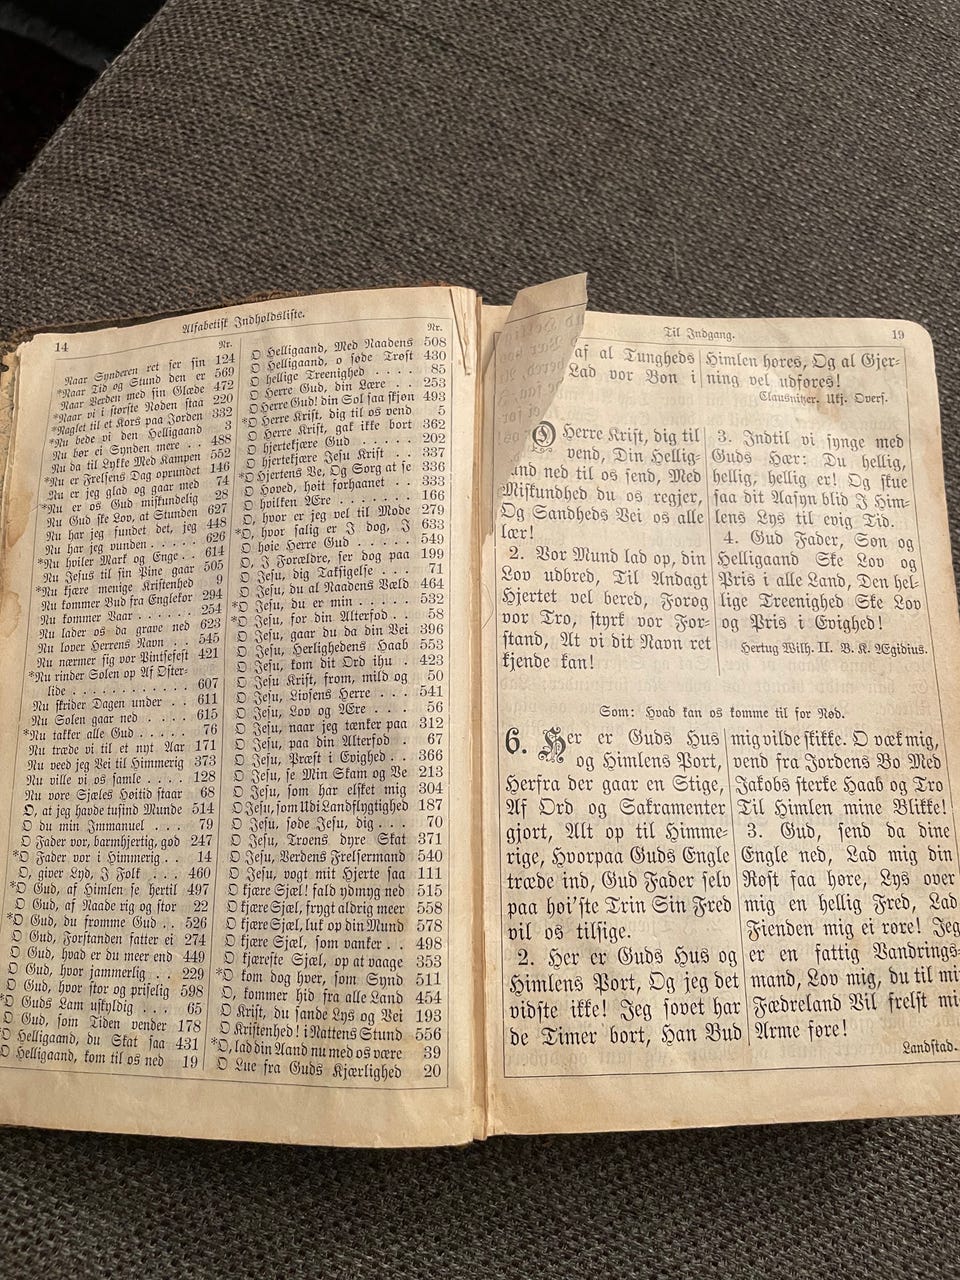 14
Alfabetisk Indholdsliste.
Nr.
Naar Synderen ret ser sin 124
*Naar Tid og Stund den er 569
Naar Verden med sin Glæde 472
*Naar vi i største Nøden staa 220
*Naglet til et Kors paa Jorden 332
*Nu bede vi den Helligaand 3
Nu bør ei Synden mere . . 488
Nu da til Lykke Med Kampen 552
*Nu er Frelsens Dag oprundet 146
Nu er jeg glad og gaar med 74
*Nu er os Gud miskundelig 28
Nu Gud ske Lov, at Stunden 627
Nu har jeg fundet det, jeg 448
Nu har jeg vunden . . . . . 626
*Nu hviler Mark og Enge . . 614
Nu Jesus til sin Pine gaar 505
*Nu kjære menige Kristenhed 9
Nu kommer Bud fra Englekor 294
Nu kommer Vaar . . . . . . 254
Nu lader os da grave ned 623
Nu lover Herrens Navn . . 545
Nu nærmer sig vor Pintsefest 421
*Nu rinder Solen op Af Øster-
lide . . . . . . . . . . 607
Nu skrider Dagen under . . 611
Nu Solen gaar ned . . . . 615
*Nu takker alle Gud . . . . 76
Nu træde vi til et nyt Aar 171
Nu veed jeg Vei til Himmerig 373
Nu ville vi os samle . . . . 128
Nu vore Sjæles Høitid staar 68
O, at jeg havde tusind Munde 514
O du min Immanuel . . . 79
O Fader vor, barmhjertig, god 247
*O Fader vor i Himmerig . . 14
O, giver Lyd, I Folk . . . 460
*O Gud, af Himlen se hertil 497
O Gud, af Naade rig og stor 22
*O Gud, du fromme Gud . . 526
O Gud, Forstanden fatter ei 274
O Gud, hvad er du meer end 449
O Gud, hvor jammerlig . . 229
O Gud, hvor stor og priselig 598
*O Guds Lam uskyldig . . . 65
O Gud, som Tiden vender 178
*O Helligaand, du Skat saa 431
O Helligaand, kom til os ned 19
Nr.
O Helligaand, Med Naadens 508
O Helligaand, o søde Trøst 430
O hellige Treenighed . . . . 85
O Herre Gud, din Lære . . 253
O Herre Gud! din Sol saa skjøn 493
*O Herre Krist, dig til os vend 5
O Herre Krist, gak ikke bort 362
O hjertekjære Gud . . . . . 202
O hjertekjære Jesu Krist . . 337
*O Hjertens Ve, Og Sorg at se 336
O Hoved, høit forhaanet . . . 333
O hvilken Ære . . . . . . . 166
O, hvor er jeg vel til Mode 279
*O, hvor salig er I dog, I 633
O høie Herre Gud . . . . . 549
O, I Forældre, ser dog paa 199
O Jesu, dig Taksigelse . . . 71
O Jesu, du al Naadens Væld 464
*O Jesu, du er min . . . . . 532
*O Jesu, for din Alterfod . . 58
O Jesu, gaar du da din Vei 396
O Jesu, Herlighedens Haab 553
O Jesu, kom dit Ord ihu . . 423
O Jesu Krist, from, mild og 50
O Jesu, Livsens Herre . . . 541
O Jesu, Lov og Ære . . . . 56
O Jesu, naar jeg tænker paa 312
O Jesu, paa din Alterfod . . 67
O Jesu, Præst i Evighed . . . 366
O Jesu, se Min Skam og Ve 213
O Jesu, som har elsket mig 304
O Jesu, som Udi Landflygtighed 187
O Jesu, søde Jesu, dig . . . 70
O Jesu, Troens dyre Skat 371
O Jesu, Verdens Frelsermand 540
O Jesu, vogt mit Hjerte saa 111
O kjære Sjæl! fald ydmyg ned 515
O kjære Sjæl, frygt aldrig meer 558
O kjære Sjæl, luk op din Mund 578
O kjære Sjæl, som vanker . . 498
O kjæreste Sjæl, op at vaage 353
*O kom dog hver, som Synd 511
O, kommer hid fra alle Land 454
O Krist, du sande Lys og Vei 193
O Kristenhed! i Nattens Stund 556
*O, lad din Aand nu med os være 39
O Lue fra Guds Kjærlighed 20
Til Indgang.
19
af al Tungheds
Lad vor Bøn i
Himlen høres, Og al Gjer-
ning vel udføres!
Clausnitzer. Ukj. Overs.
O Herre Krist, dig til
vend, Din Hellig-
and ned til os send, Med
Miskundhed du os regjer,
Og Sandheds Vei os alle
lær!
2. Vor Mund lad op, din
Lov udbred, Til Andagt
Hjertet vel bered, Forøg
vor Tro, styrk vor For-
stand, At vi dit Navn ret
kjende kan!
3. Indtil vi synge med
Guds Hær: Du hellig,
hellig, hellig er! Og skue
saa dit Aasyn blid I Him-
lens Lys til evig Tid.
4. Gud Fader, Søn og
Helligaand Ske Lov og
Pris i alle Land, Den hel-
lige Treenighed Ske Lov
og Pris i Evighed!
Hertug Wilh. II. B. K. Ægidius.
Som: Hvad kan os komme til for Nød.
6. Her er Guds Hus
og Himlens Port,
Herfra der gaar en Stige,
Af Ord og Sakramenter
gjort, Alt op til Himme-
rige, Hvorpaa Guds Engle
træde ind, Gud Fader selv
paa høi'ste Trin Sin Fred
vil os tilsige.
2. Her er Guds Hus og
Himlens Port, Og jeg det
vidste ikke! Jeg sovet har
de Timer bort, Han Bud
mig vilde skikke. O væk mig,
vend fra Jordens Bo Med
Jakobs sterke Haab og Tro
Til Himlen mine Blikke!
3. Gud, send da dine
Engle ned, Lad mig din
Røst faa høre, Lys over
mig en hellig Fred, Lad
Fienden mig ei røre! Jeg
er en fattig Vandrings-
mand, Lov mig, du til mi
Fædreland Vil frelst mi
Arme føre!
Landstad.